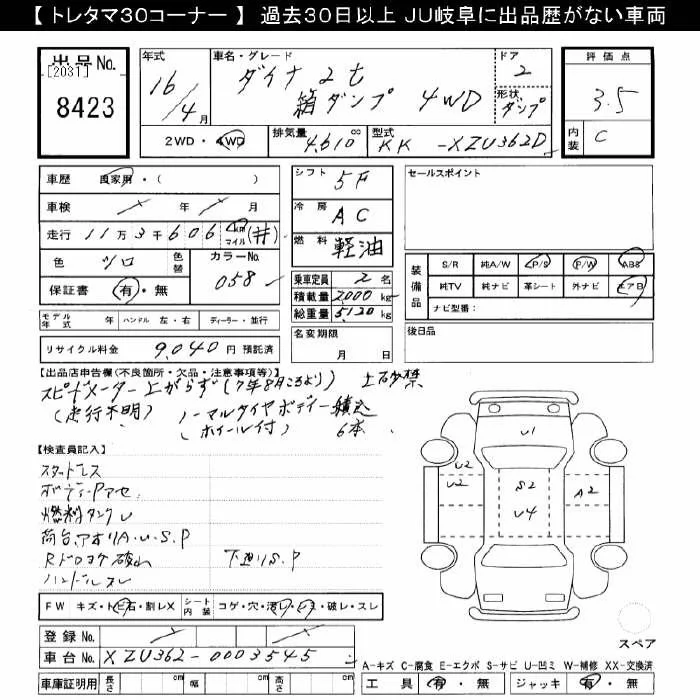 【 トレタマ30コーナー 】 過去30日以上 JU岐阜に出品歴がない車両
出品No. [2031] 8423
年式 16/4月
車名・グレード ダイナ 2t 箱ダンプ 4WD
ドア 2
形状 ダンプ
評価点 3.5
内装 C
2WD・4WD 排気量 4,610cc 型式 KK-XZU362D
車歴 自家用・( )
車検 年 月
走行 11万3千606 km マイル (#)
色 シロ 色替 カラーNo. 058
保証書 有・無
モデル年式 年 ハンドル 左・右 ディーラー・並行
リサイクル料金 9,040円 預託済
シフト 5F
冷房 AC
燃料 軽油
乗車定員 2名
積載量 2,000kg
総重量 5,120kg
名変期限 月 日
セールスポイント
装備品 S/R 純A/W P/S P/W ABS
純TV 純ナビ 革シート 外ナビ エアB
ナビ型番:
後日品
【出品店申告欄(不良箇所・欠品・注意事項等)】
スピードメーター上がらず(7年8月ころより) 土石禁
(走行不明) ノーマルタイヤボディー積込
(ホイール付) 6本
【検査員記入】
スタッドレス
ボディーPアセ
燃料タンクU
荷台、アオリA.U.S.P
下廻りS.P
ハンドルスレ
U1
U2
U2 S2 A2
U4
FW キズ・トビ石・割レX シート内装 コゲ・穴・汚レ・シミ・破レ・スレ
登録No.
車台No. XZU362-0003545
車庫証明用 長さ cm 幅 cm 高さ cm
スペア
A-キズ C-腐食 E-エクボ S-サビ U-凹ミ W-補修 XX-交換済
工具 有・無 ジャッキ 有・無